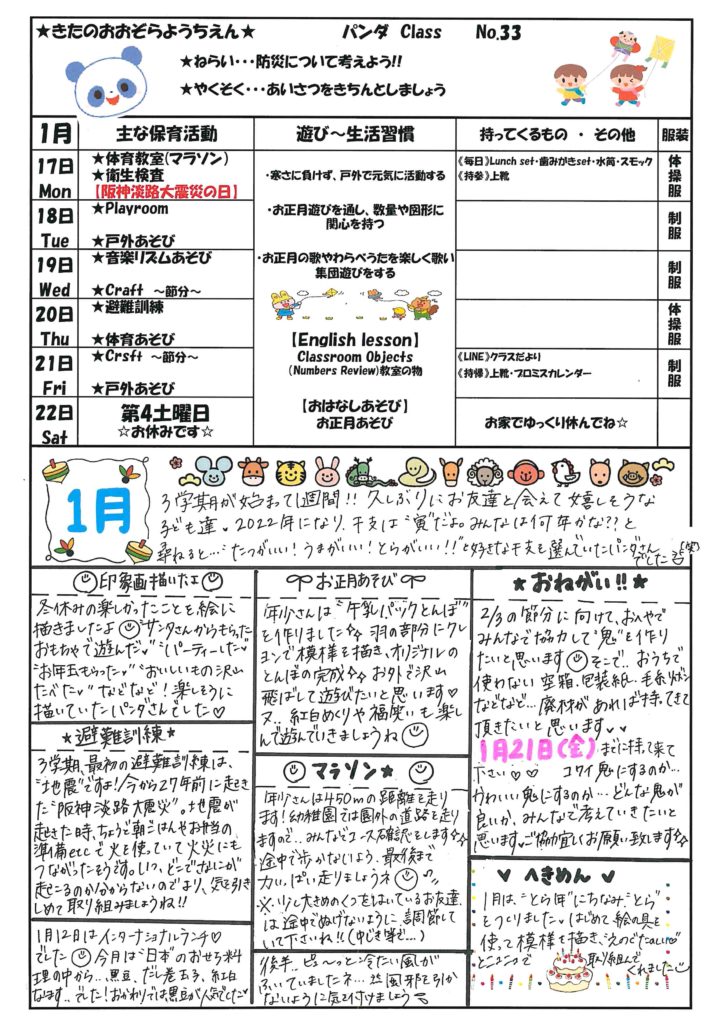 ★きたのおおぞらようちえん★　パンダ Class　No.33
★ねらい･･･防災について考えよう!!
★やくそく･･･あいさつをきちんとしましょう
1月　主な保育活動　遊び～生活習慣　持ってくるもの ・ その他　服装
17日 Mon
★体育教室(マラソン)
★衛生検査
【阪神淡路大震災の日】
《毎日》Lunch set・歯みがきset・水筒・スモック
《持参》上靴
体操服
18日 Tue
★Playroom
★戸外あそび
制服
19日 Wed
★音楽リズムあそび
★Craft ～節分～
制服
20日 Thu
★避難訓練
★体育あそび
体操服
21日 Fri
★Crsft ～節分～
★戸外あそび
《LINE》クラスだより
《持帰》上靴・プロミスカレンダー
制服
22日 Sat
第4土曜日
☆お休みです☆
お家でゆっくり休んでね☆
・寒さに負けず、戸外で元気に活動する
・お正月遊びを通し、数量や図形に
関心を持つ
・お正月の歌やわらべうたを楽しく歌い
集団遊びをする
【English lesson】
Classroom Objects
(Numbers Review)教室の物
【おはなしあそび】
お正月あそび
1月
3学期が始まって1週間!! 久しぶりにお友達と会えて嬉しそうな
子ども達。2022年になり、干支は"寅"だよ。みんなは何年かな??と
尋ねると…"たつがいい! うまがいい! とらがいい!!"と好きな干支を選んでいたパンダさん
でした (笑)
印象画描いたよ
冬休みの楽しかったことを絵に
描きましたよ "サンタさんからもらった
おもちゃで遊んだ" "パーティーした"
"お年玉もらった" "おいしいもの沢山
たべた" などなど! 楽しそうに
描いていたパンダさんでした♡
★避難訓練★
3学期、最初の避難訓練は、
"地震"ですよ! 今から27年前に起き
た"阪神淡路大震災"。地震が
起きた時、ちょうど朝ごはんやお弁当の
準備etcで火を使っていて火災にも
つながったそうです。いつ、どこでなにが
起こるのか分からないのでより、気を引き
しめて取り組みましょうね!!
1月12日はインターナショナルランチ♡
でした 今月は"日本"のおせち料
理の中から…黒豆、だし巻き玉子、紅白
なます…でした! おかわりでは黒豆が人気でした♡
お正月あそび
年少さんは"牛乳パックとんぼ"
を作りました☆ 羽の部分にクレ
ヨンで模様を描き、オリジナルの
とんぼの完成☆ お外で沢山
飛ばして遊びたいと思います♡
又、紅白めくりや福笑いも楽し
んで遊んでいきましょうね
マラソン★
年少さんは450mの距離を走り
ます! 幼稚園では園外の道路を走り
ますので…みんなでコース確認をします☆
途中で歩かないよう、最後まで
力いっぱい走りましょうネ ♪
※少し大きめのくつをはいているお友達
は途中でぬげないように調節して
いて下さいね!! (中じき等で…)
後半…ピューっと冷たい風が
ふいていましたネ… 風邪を引か
ないように気を付けましょう
★おねがい!!★
2/3の節分に向けて、おへやで
みんなで協力して"鬼"を作り
たいと思います そこで…おうちで
使わない空箱、包装紙…毛糸、リボン
などなど… 廃材があれば持ってきて
頂きたいと思います♡
1月21日(金)までに持って来て
下さい♡♡ コワイ鬼にするのか…
かわいい鬼にするのか… どんな鬼が
良いか、みんなで考えていきたいと
思います。ご協力宜しくお願い致します☆
へきめん
1月は、"とら年"にちなみ"とら"
をつくりました。はじめて絵の具を
使って模様を描き、
取り組んで
くれました